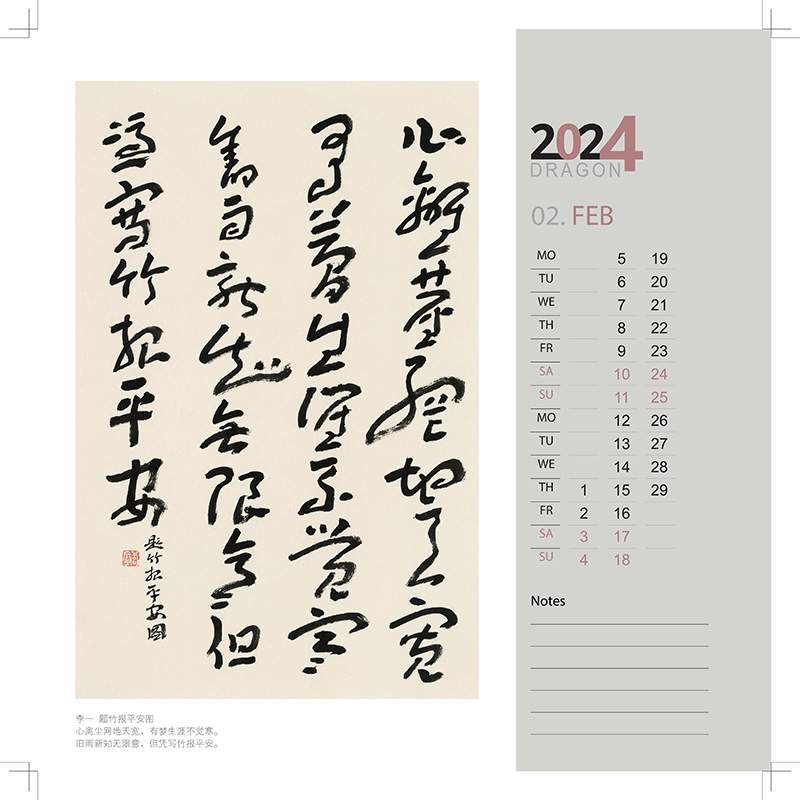 心離塵網地天寬
有夢生涯不覺寒
舊雨新知無限意但
憑寫竹報平安
題竹報平安圖
李一 题竹报平安图
心离尘网地天宽，有梦生涯不觉寒。
旧雨新知无限意，但凭写竹报平安。
2024
DRAGON
02. FEB
MO 5 19
TU 6 20
WE 7 21
TH 8 22
FR 9 23
SA 10 24
SU 11 25
MO 12 26
TU 13 27
WE 14 28
TH 1 15 29
FR 2 16
SA 3 17
SU 4 18
Notes